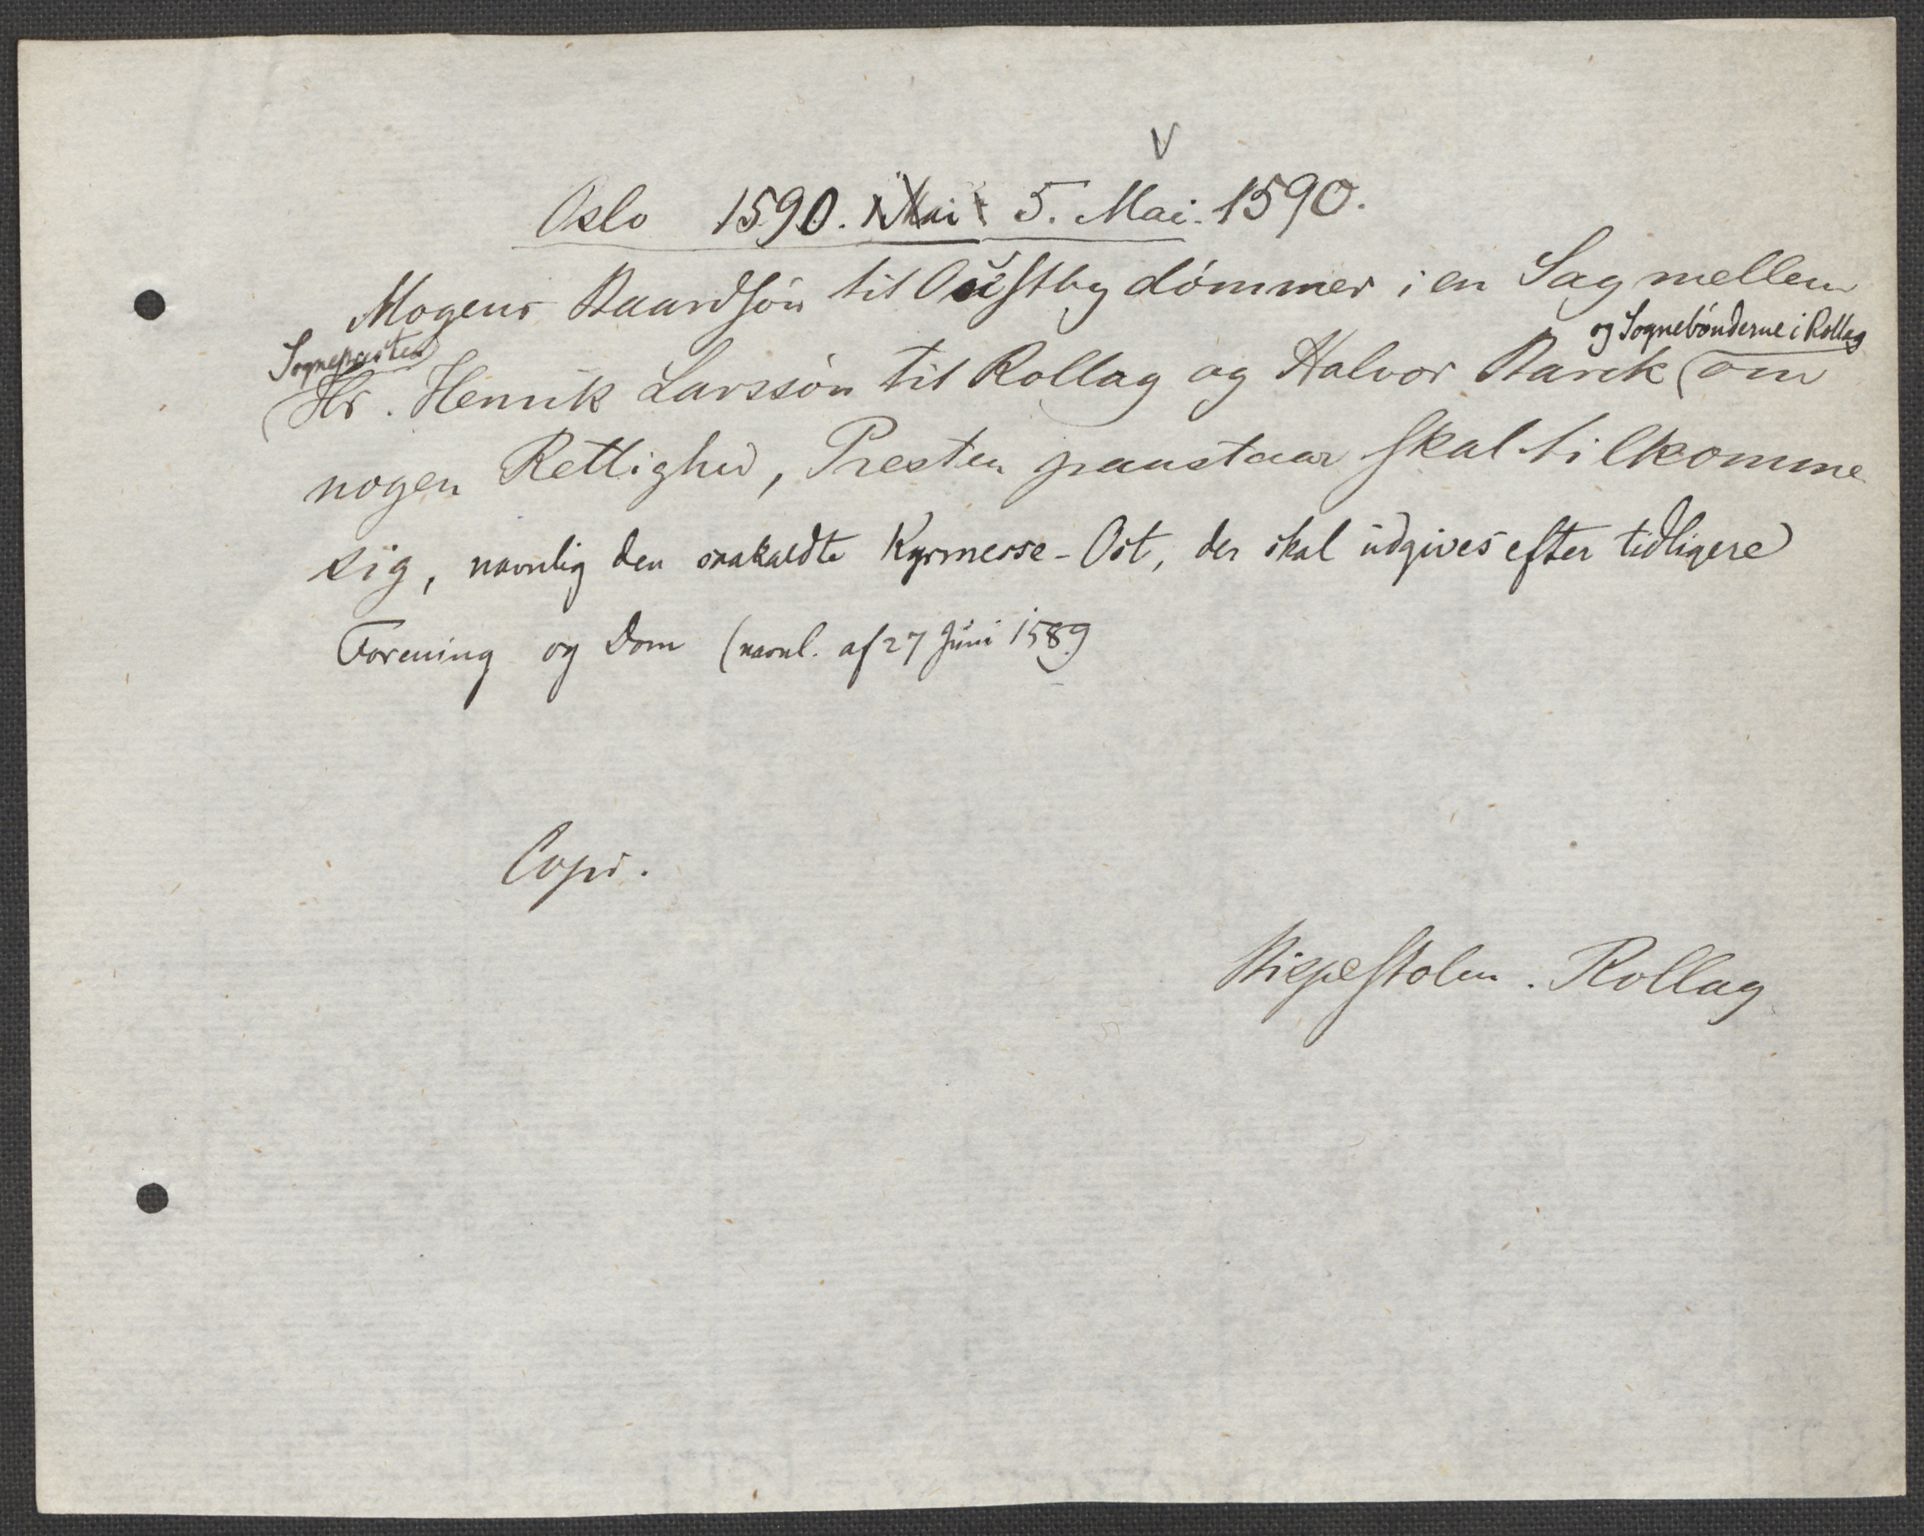 V
Oslo 1590. 1 Mai 5. Mai. 1590.
Mogens Baardsön til Oustby dömmer i en Sag mellem
Sognepresten
og Sognebönderne i Rollag
Hr. Henrik Larssön til Rollag og Halvor Barck (om
nogen Rettighed, Presten paastaar skal tilkomme
sig, navnlig den saakaldte Kyrmesse-Ost, der skal udgives efter tidligere
Forening og Dom (navnl. af 27 Juni 1589
Copi.
Bispestolen. Rollag